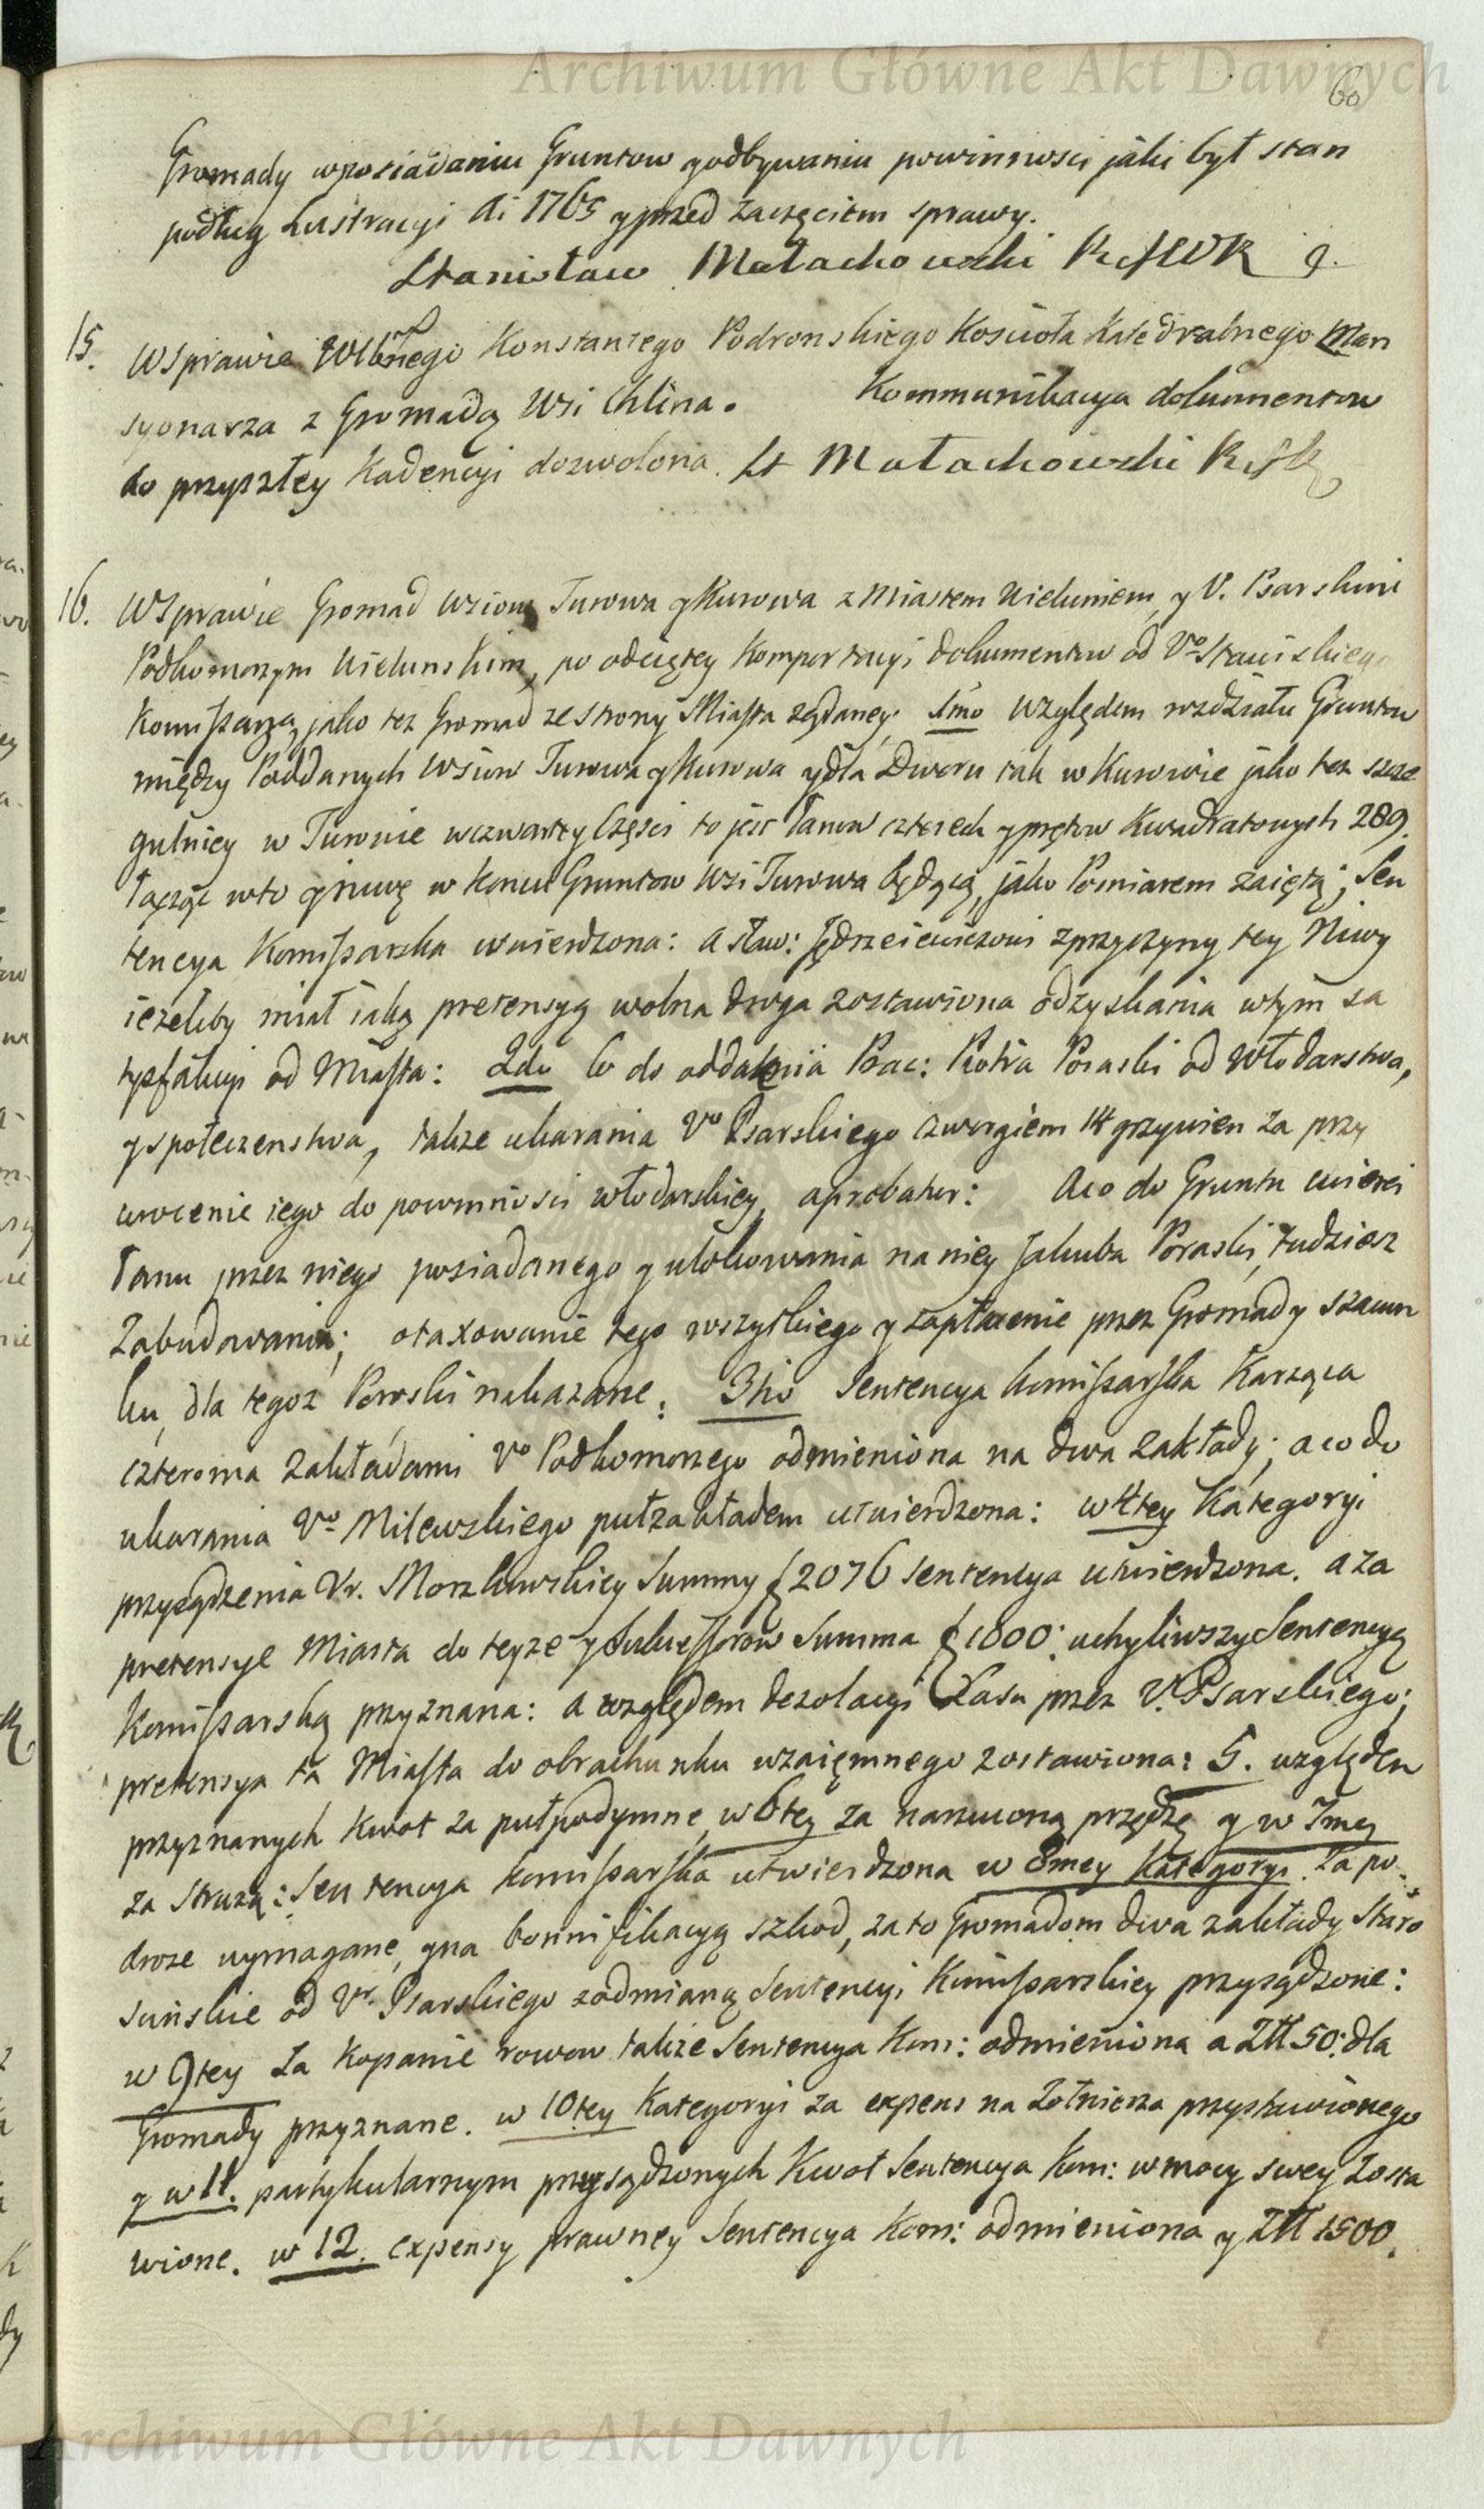 Archiwum Główne Akt Dawnych
60
Gromady wposiadaniu Gruntow y odbywaniu powinnosci jaki był stan
podług Lustracyi Ai 1765 y przed zaczęciem sprawy.
Stanisław Małachowski
15. W Sprawie Wlbnego Konstantego Podronskiego Kościoła Katedralnego Man
syonarza z Gromadą Wsi Chlina. Kommunikacya dokumentow
do przyszłey Kadencyi dozwolona. St Małachowski
16. W Sprawie Gromad Wsiow Turowa y Kurowa z Miastem Wieluniem, y V. Psarskim
Podkomorzym Wielunskim, po odciętey Komportacyi dokumentow od Vo Stawiskiego
Komissarza, jako tez Gromad ze strony Miasta żądaney. 1mo Względem rozdziału Gruntow
między Poddanych Wsiow Turowa y Kurowa y dla Dworu tak w Kurowie jako tez szcze
gulniey w Turowie wczwartey Części to jest Łanow czterech y prętow Kwadratowych 289.
łącząc wto y niwę w koncu Gruntow Wsi Turowa będącą, jako Pomiarem zaiętą; Sen
tencya Komissarska utwierdzona: a Sław: Jędrzeiewiczowi zprzyczyny tey Niwy
ieżeliby miał iaką pretensyą wolna droga zostawiona odzyskania wtym sa
tysfakcyi od Miasta: 2do Co do oddalenia Prac: Piotra Poraski od Włodarstwa,
y społeczenstwa, także ukarania Vo Psarskiego czworgiem 14 grzywien za przy
wrocenie iego do powinności włodarskiey, aprobatur: Aco do Gruntu cwierci
Łanu przez niego posiadanego y ulokowania na niey Jakuba Poraski, tudziesz
Zabudowania; otaxowanie tego wszytkiego y zapłacenie przez Gromady szacun
ku, dla tegoz Poroski nakazane: 3tio Sentencya komissarska Karząca
czteroma zakładami Vo Podkomorzego odmieniona na dwa zakłady; aco do
ukarania Vo Milewskiego pułzakładem utwierdzona: w 4tey Kategoryi
przysądzenia Vr. Morzkowskiey Summy f 2076 Sentencya utwierdzona. a za
pretensye Miasta do teyże y Sukcessorow Summa f 1800: uchyliwszy Sentencyą
Komissarską przyznana: a względem dezolacyi Lasu przez V. Psarskiego;
pretensya ta Miasta do obrachunku wzaięmnego zostawiona: 5. względem
przyznanych kwot za pułpodymne, w 6tey za narzuconą przędzę y w 7mey
za Strużą: Sentencya komissarska utwierdzona w 8mey kategoryi. Za po
droze wymagane, y na bonnifikacyą szkod, za to Gromadom dwa zakłady Staro
scińskie od Vr. Psarskiego zodmianą Sentencyi Komissarskiey przysądzone:
w 9tey Za Kopanie rowow także Sentencya Kom: odmieniona a Złł 50: dla
Gromady przyznane. w 10tey Kategoryi za expens na Zołnierza przystawionego
y w 11. partykularnym przysądzonych Kwot Sentencya Kom: w mocy swey Zosta
wione. w 12. expensy prawney Sentencya Kom: odmieniona y Złł 1500.
Archiwum Główne Akt Dawnych